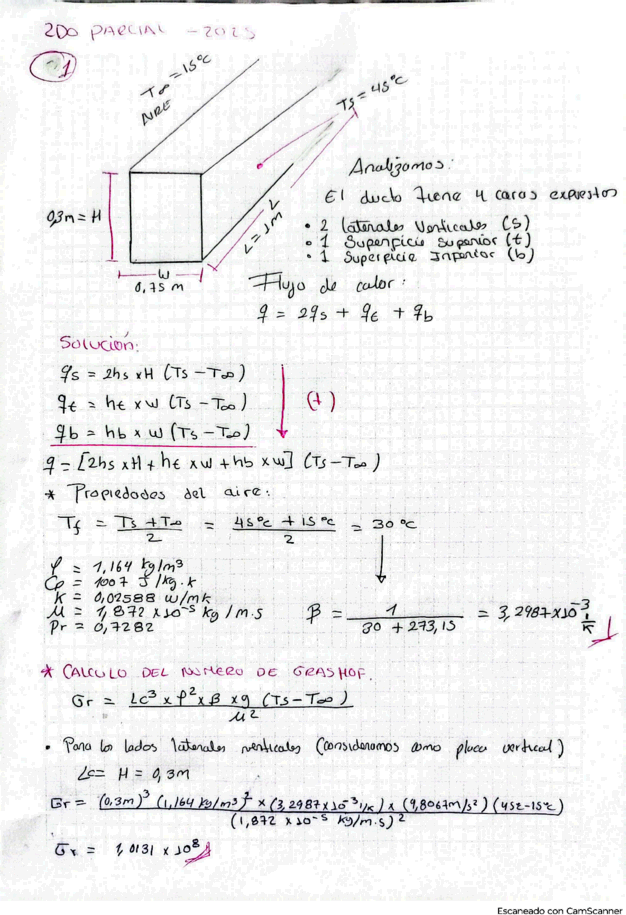 2DO PARCIAL - 2025
1
T∞ = 15°C
AIRE
Ts = 45°C
0,3m = H
L = 1m
L
W
0,75 m
Analizamos:
El ducto tiene 4 caras expuestas
• 2 laterales verticales (s)
• 1 Superficie superior (t)
• 1 Superficie Inferior (b)
Flujo de calor:
q = 2qs + qt + qb
Solución:
qs = 2hs x H (Ts - T∞)
qt = ht x w (Ts - T∞)
qb = hb x w (Ts - T∞)
(+)
q = [2hs x H + ht x w + hb x w] (Ts - T∞)
* Propiedades del aire:
Tf = Ts + T∞ / 2 = 45°C + 15°C / 2 = 30°C
ρ = 1,164 kg/m³
Cp = 1007 J/kg.k
K = 0,02588 w/mk
μ = 1,872 x10⁻⁵ kg/m.s
Pr = 0,7282
β = 1 / 30 + 273,15 = 3,2987 x10⁻³ 1/K
* CALCULO DEL NUMERO DE GRASHOF.
Gr = Lc³ x ρ² x β x g (Ts - T∞) / μ²
• Para los lados laterales verticales (consideramos como placa vertical)
Lc = H = 0,3m
Gr = (0,3m)³ (1,164 kg/m³)² x (3,2987x10⁻³ 1/K) x (9,8067m/s²) (45°C-15°C) / (1,872 x10⁻⁵ kg/m.s)²
Gr = 1,0131 x 10⁸
Escaneado con CamScanner